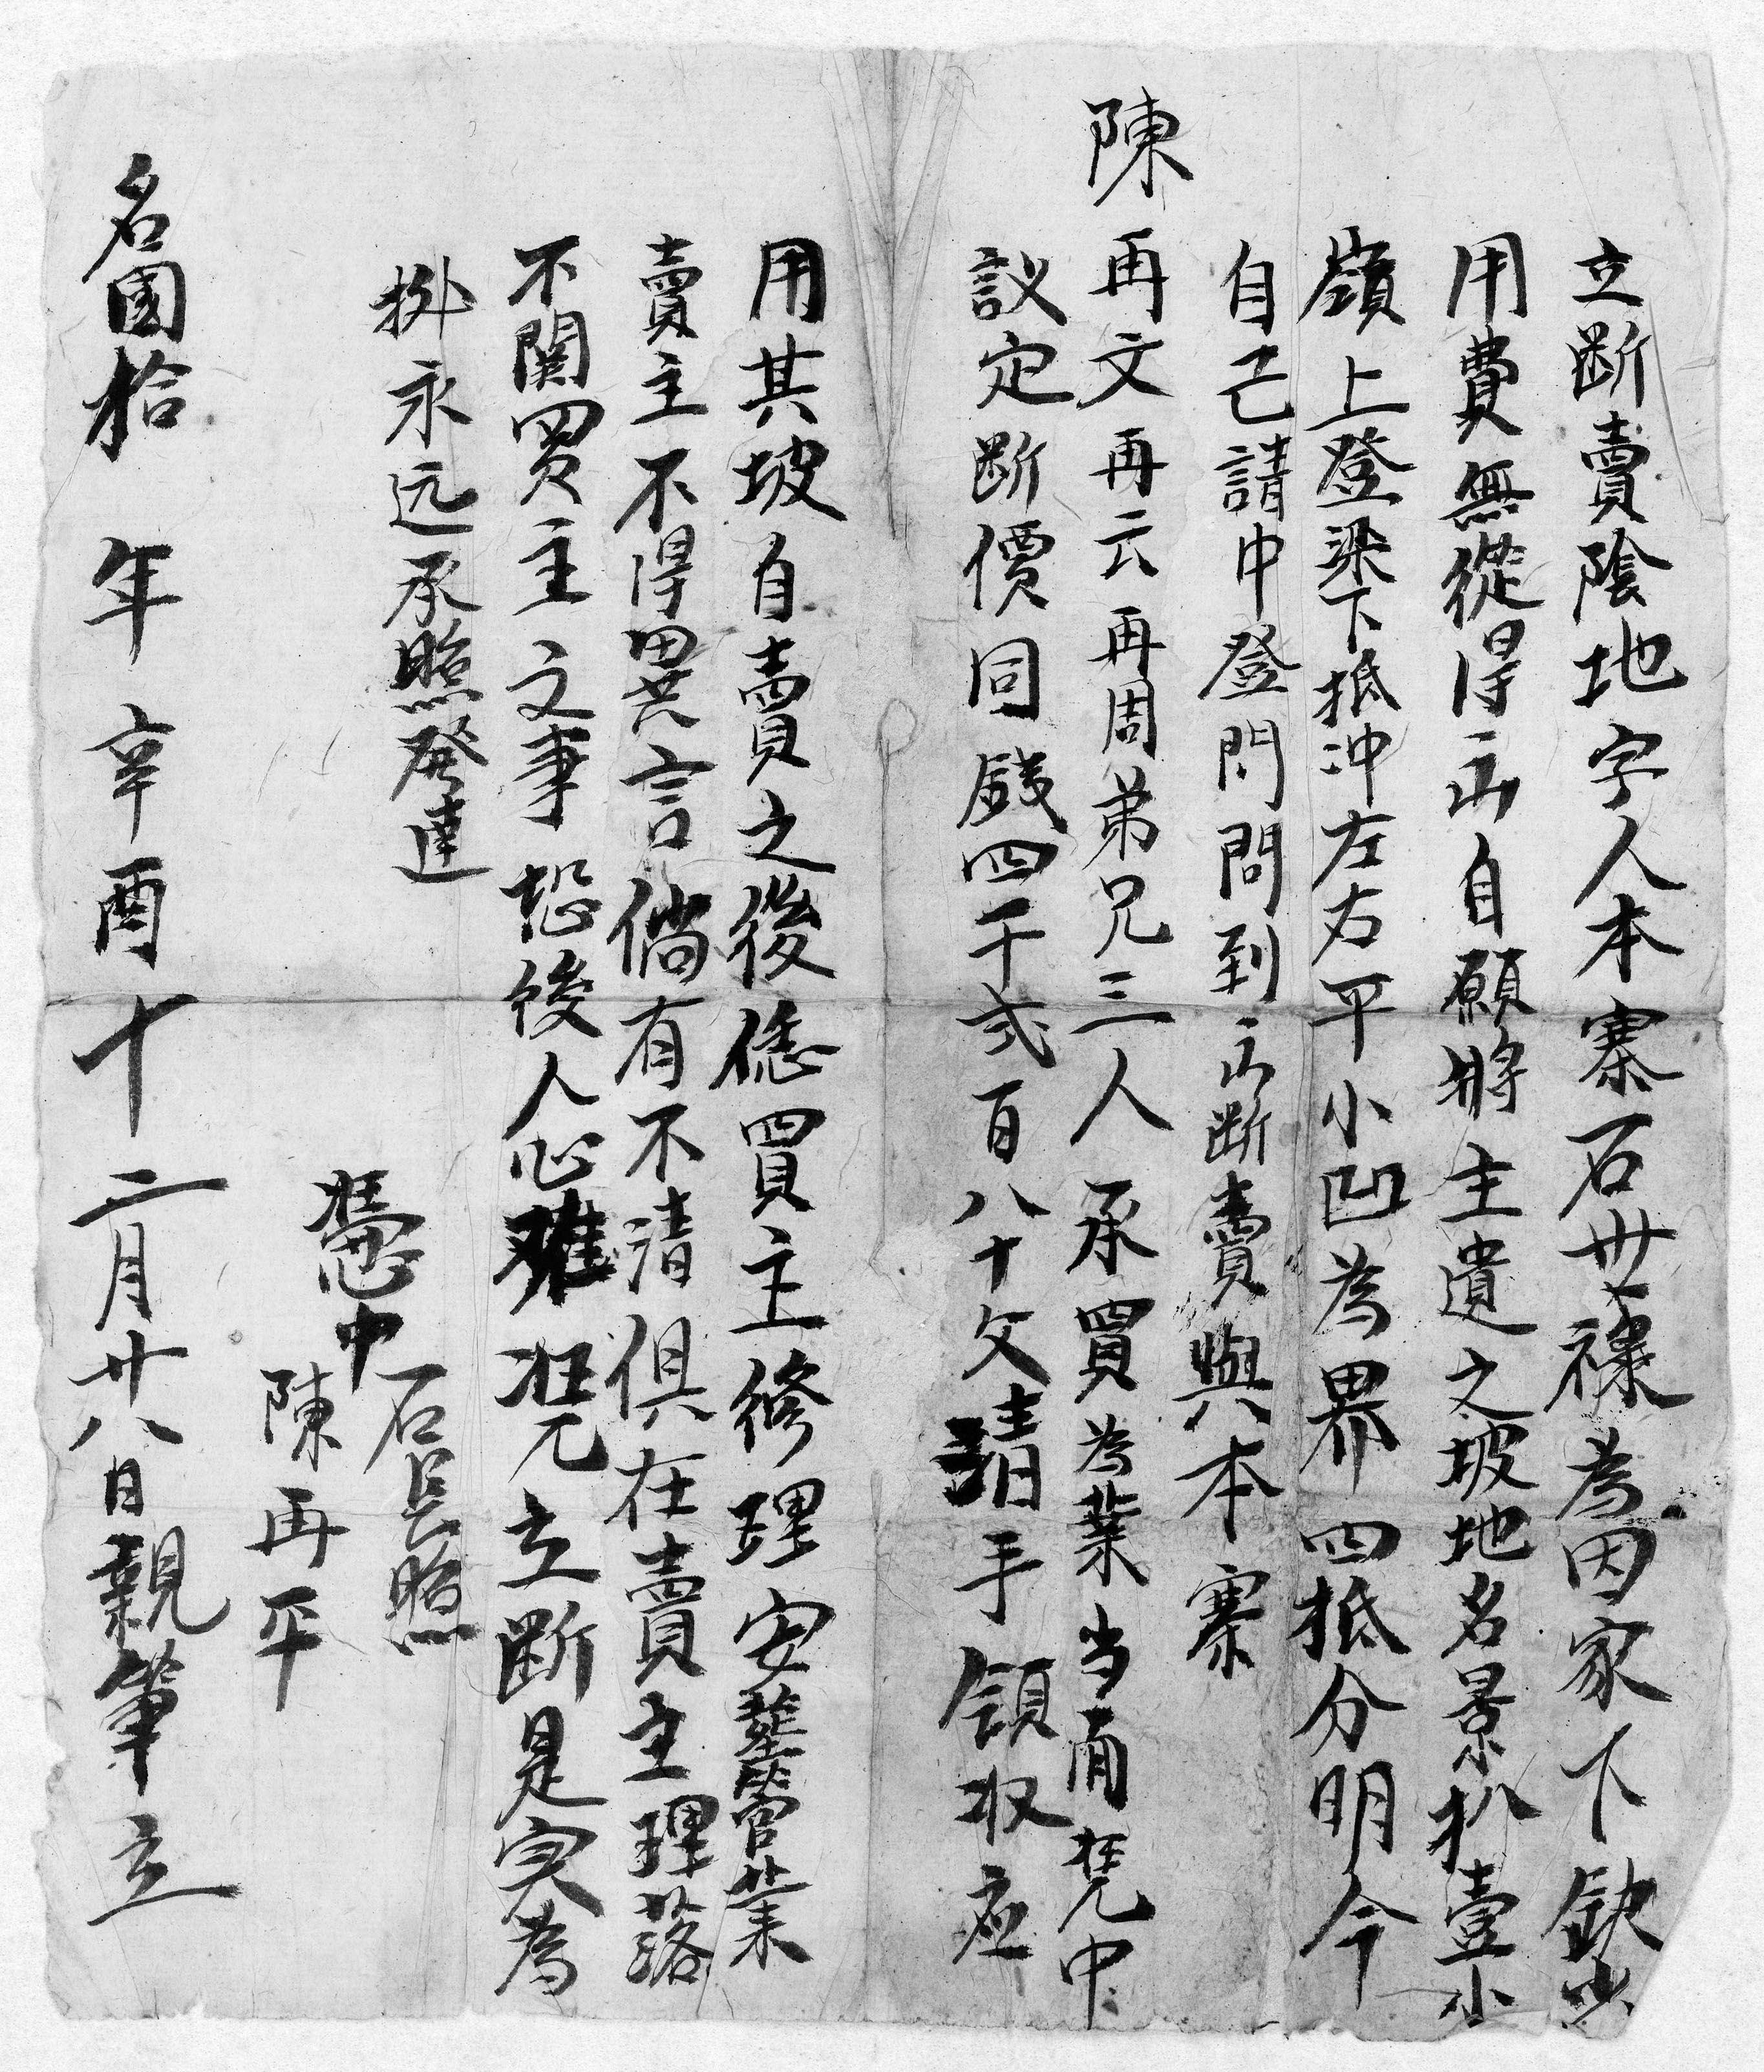 立断賣陰地字人本寨石卅祿為因家下缺少
用費無從得出自願將主遺之坡地名景扒壹小
嶺上登梁下抵冲左右平小凹為界四抵分明今
自己請中登門問到立断賣與本寨
陳再文再云再周弟兄三人承買為業当面凭中
議定断價同錢四千弍百八十文請手領収应
用其坡自賣之後恁買主修理安葬管業
賣主不得異言倘有不清俱在賣主理落
不関買主之事恐後人心难凭立断是实為
挑永远承照発達
憑中
石長照
陳再平
名國拾年辛酉十二月廿八日親筆立